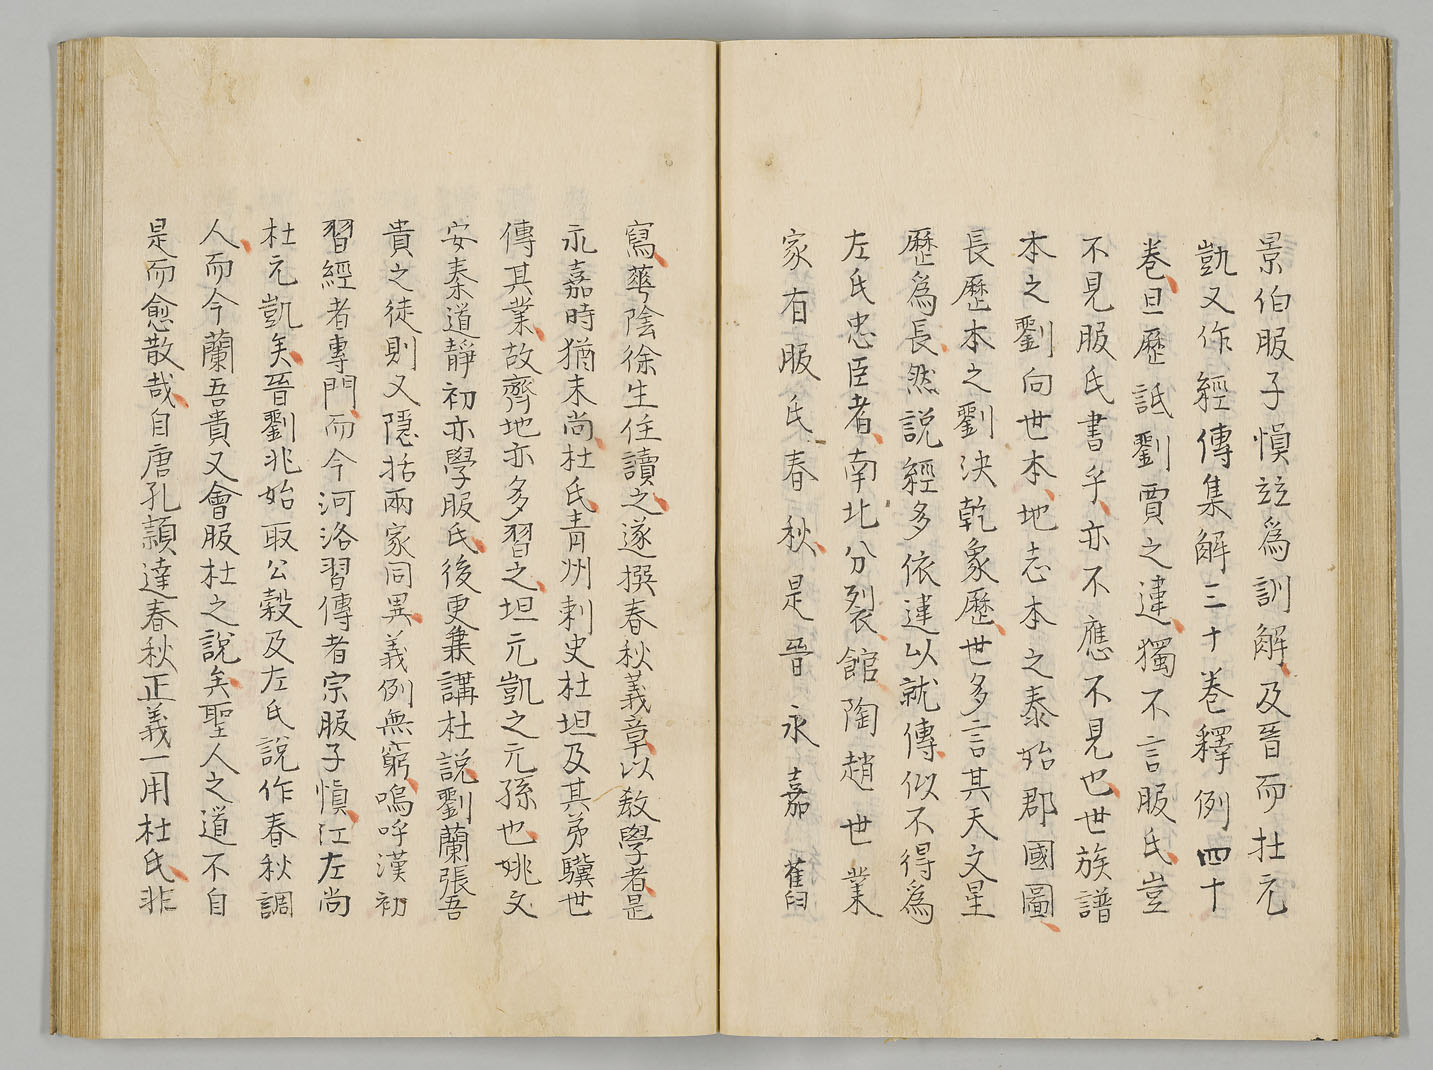 景伯服子愼竝爲訓解及晉而杜元
凱又作經傳集解三十卷釋例四十
卷旦歷詆劉賈之違獨不言服氏豈
不見服氏書乎亦不應不見也世族譜
本之劉向世本地志本之泰始郡國圖
長歷本之劉洪乾象歷世多言其天文星
歷爲長然説經多依違以就傳似不得爲
左氏忠臣者南北分裂館陶趙世業
家有服氏春秋是晉永嘉舊
寫華陰徐生往讀之遂撰春秋義章以敎學者是
永嘉時猶未尚杜氏青州刺史杜坦及其弟驥世
傳其業故齊地亦多習之坦元凱之元孫也姚文
安秦道靜初亦學服氏後更兼講杜説劉蘭張吾
貴之徒則又隱括兩家同異義例無窮嗚呼漢初
習經者專門而今河洛習傳者宗服子愼江左尚
杜元凱矣晉劉兆始取公穀及左氏説作春秋調
人而今蘭吾貴又會服杜之説矣聖人之道不自
是而愈散哉自唐孔穎達春秋正義一用杜氏非